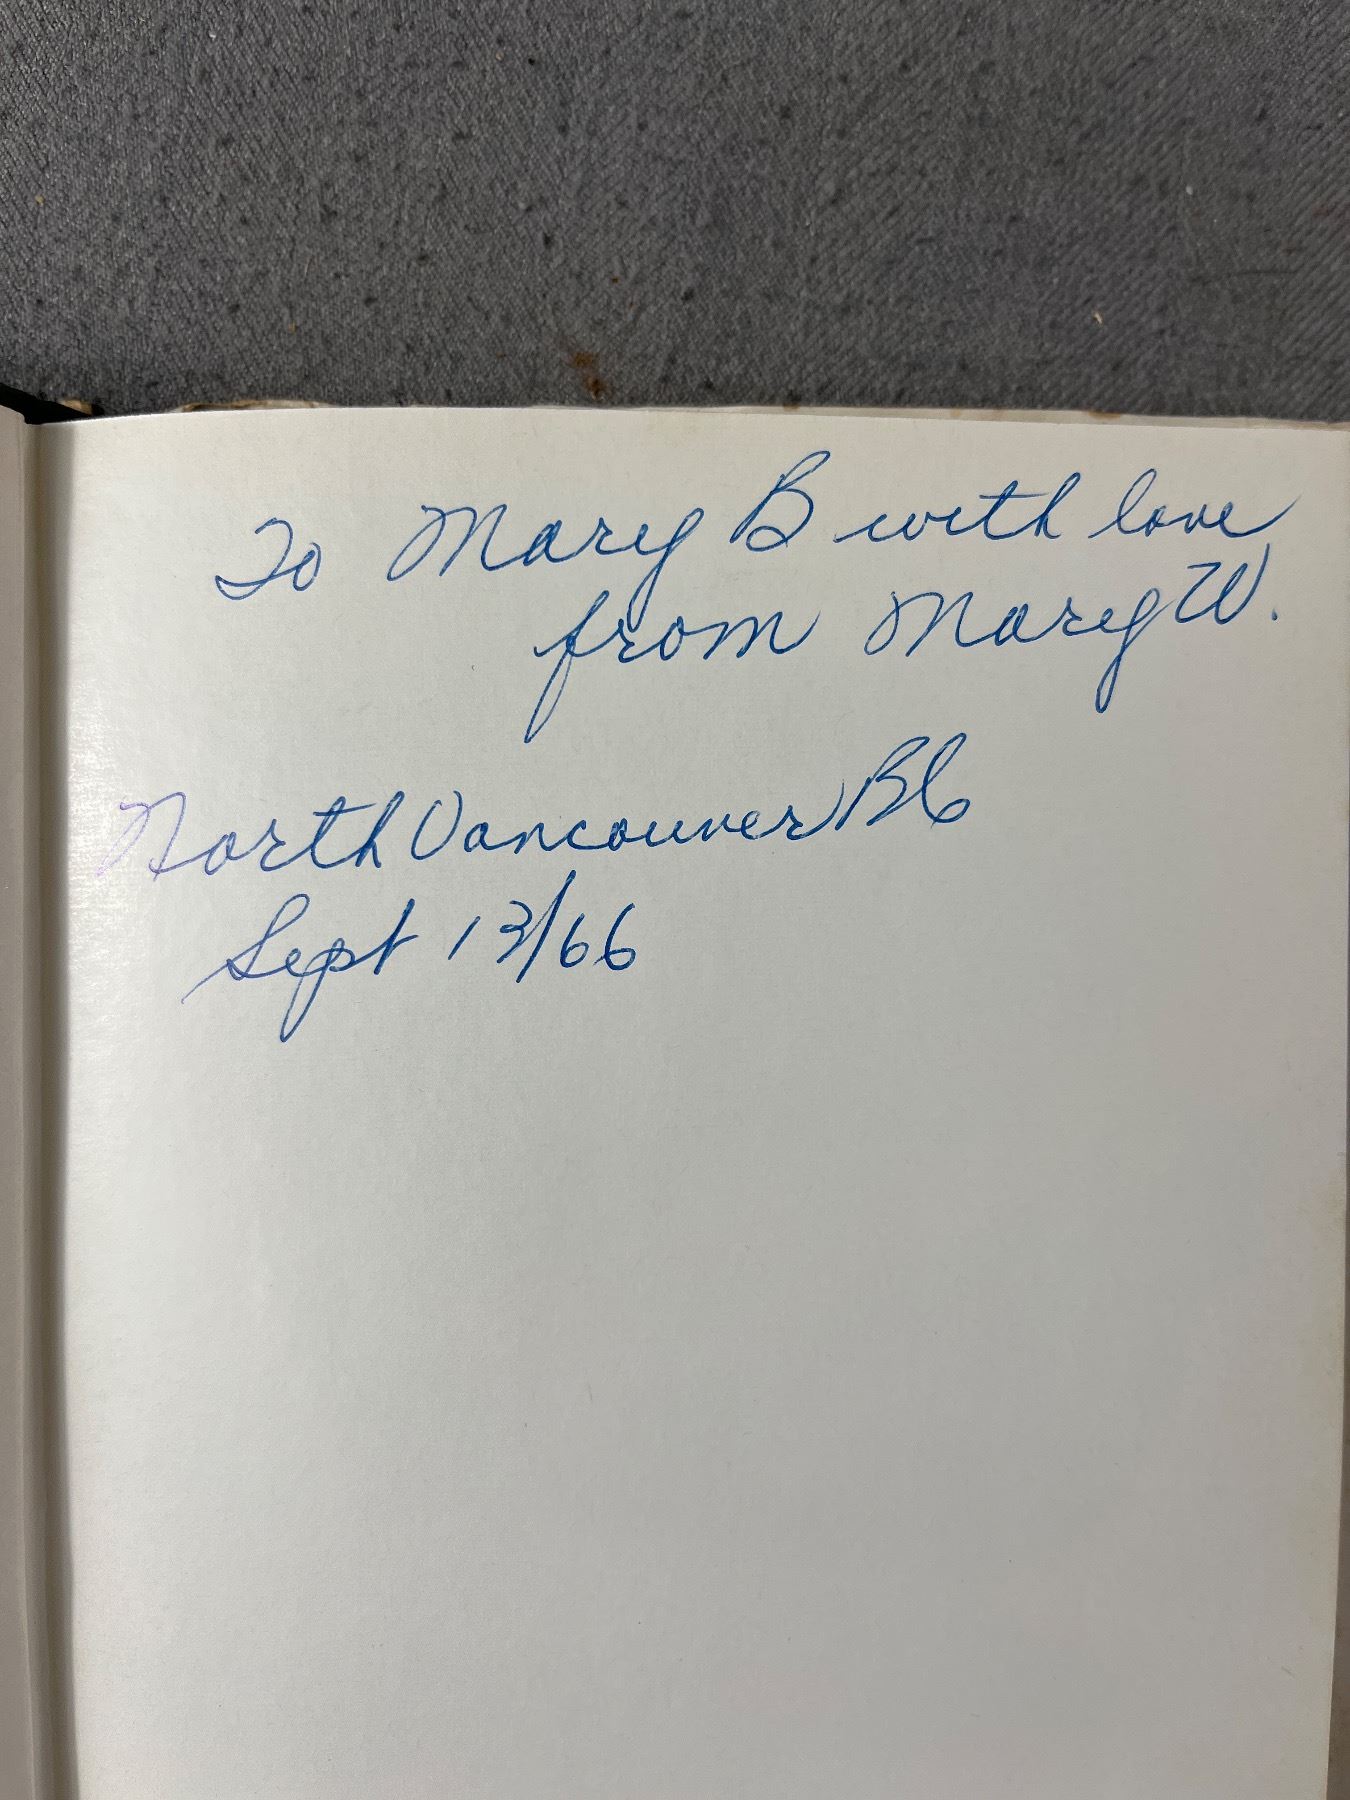 To Mary B with love
from Mary W.
North Vancouver BC
Sept 13/66